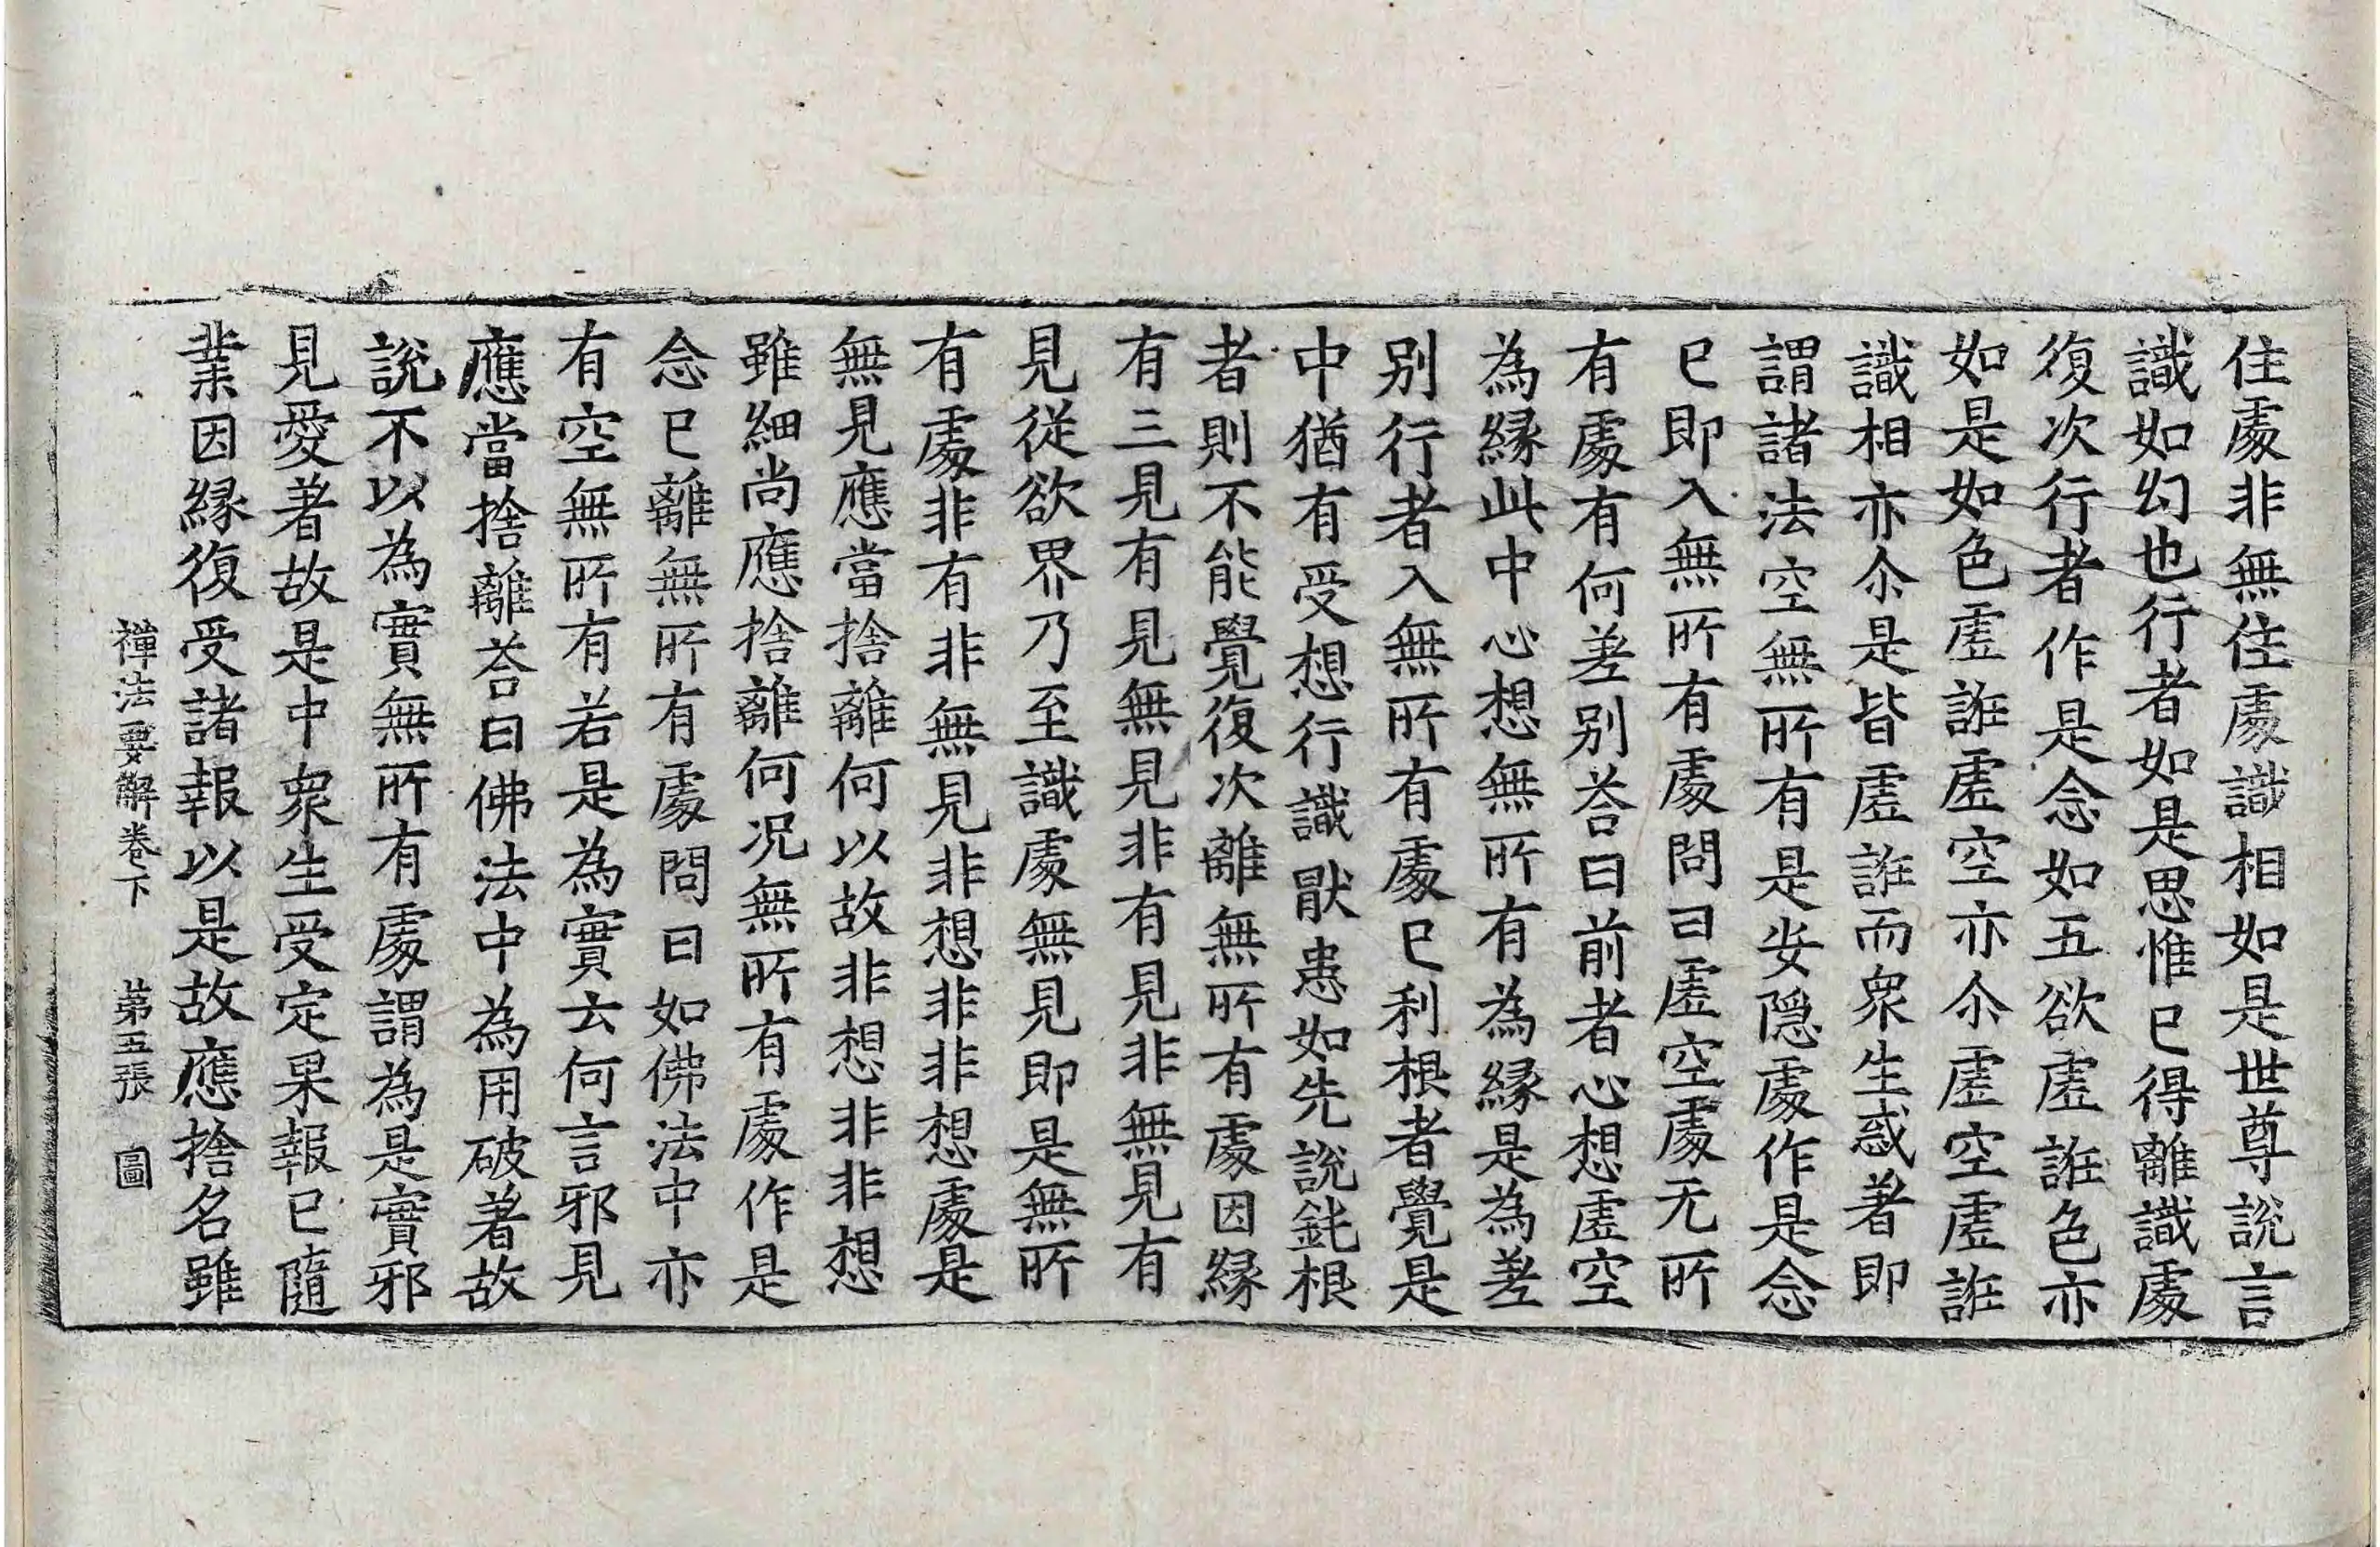 住處非無住處識相如是世尊說言
識如幻也行者如是思惟已得離識處
復次行者作是念如五欲虛誑色亦
如是如色虛誑虛空亦尒虛空虛誑
識相亦尒是皆虛誑而衆生惑著即
謂諸法空無所有是安隱處作是念
已即入無所有處問曰虛空處无所
有處有何差別荅曰前者心想虛空
為緣此中心想無所有為緣是為差
別行者入無所有處已利根者覺是
中猶有受想行識猒患如先說鈍根
者則不能覺復次離無所有處因緣
有三見有見無見非有見非無見有
見從欲界乃至識處無見即是無所
有處非有非無見非想非非想處是
無見應當捨離何以故非想非非想
雖細尚應捨離何況無所有處作是
念已離無所有處問曰如佛法中亦
有空無所有若是為實云何言邪見
應當捨離荅曰佛法中為用破著故
說不以為實無所有處謂為是實邪
見愛著故是中衆生受定果報已隨
業因緣復受諸報以是故應捨名雖
禪法要解卷下 第五張 圖